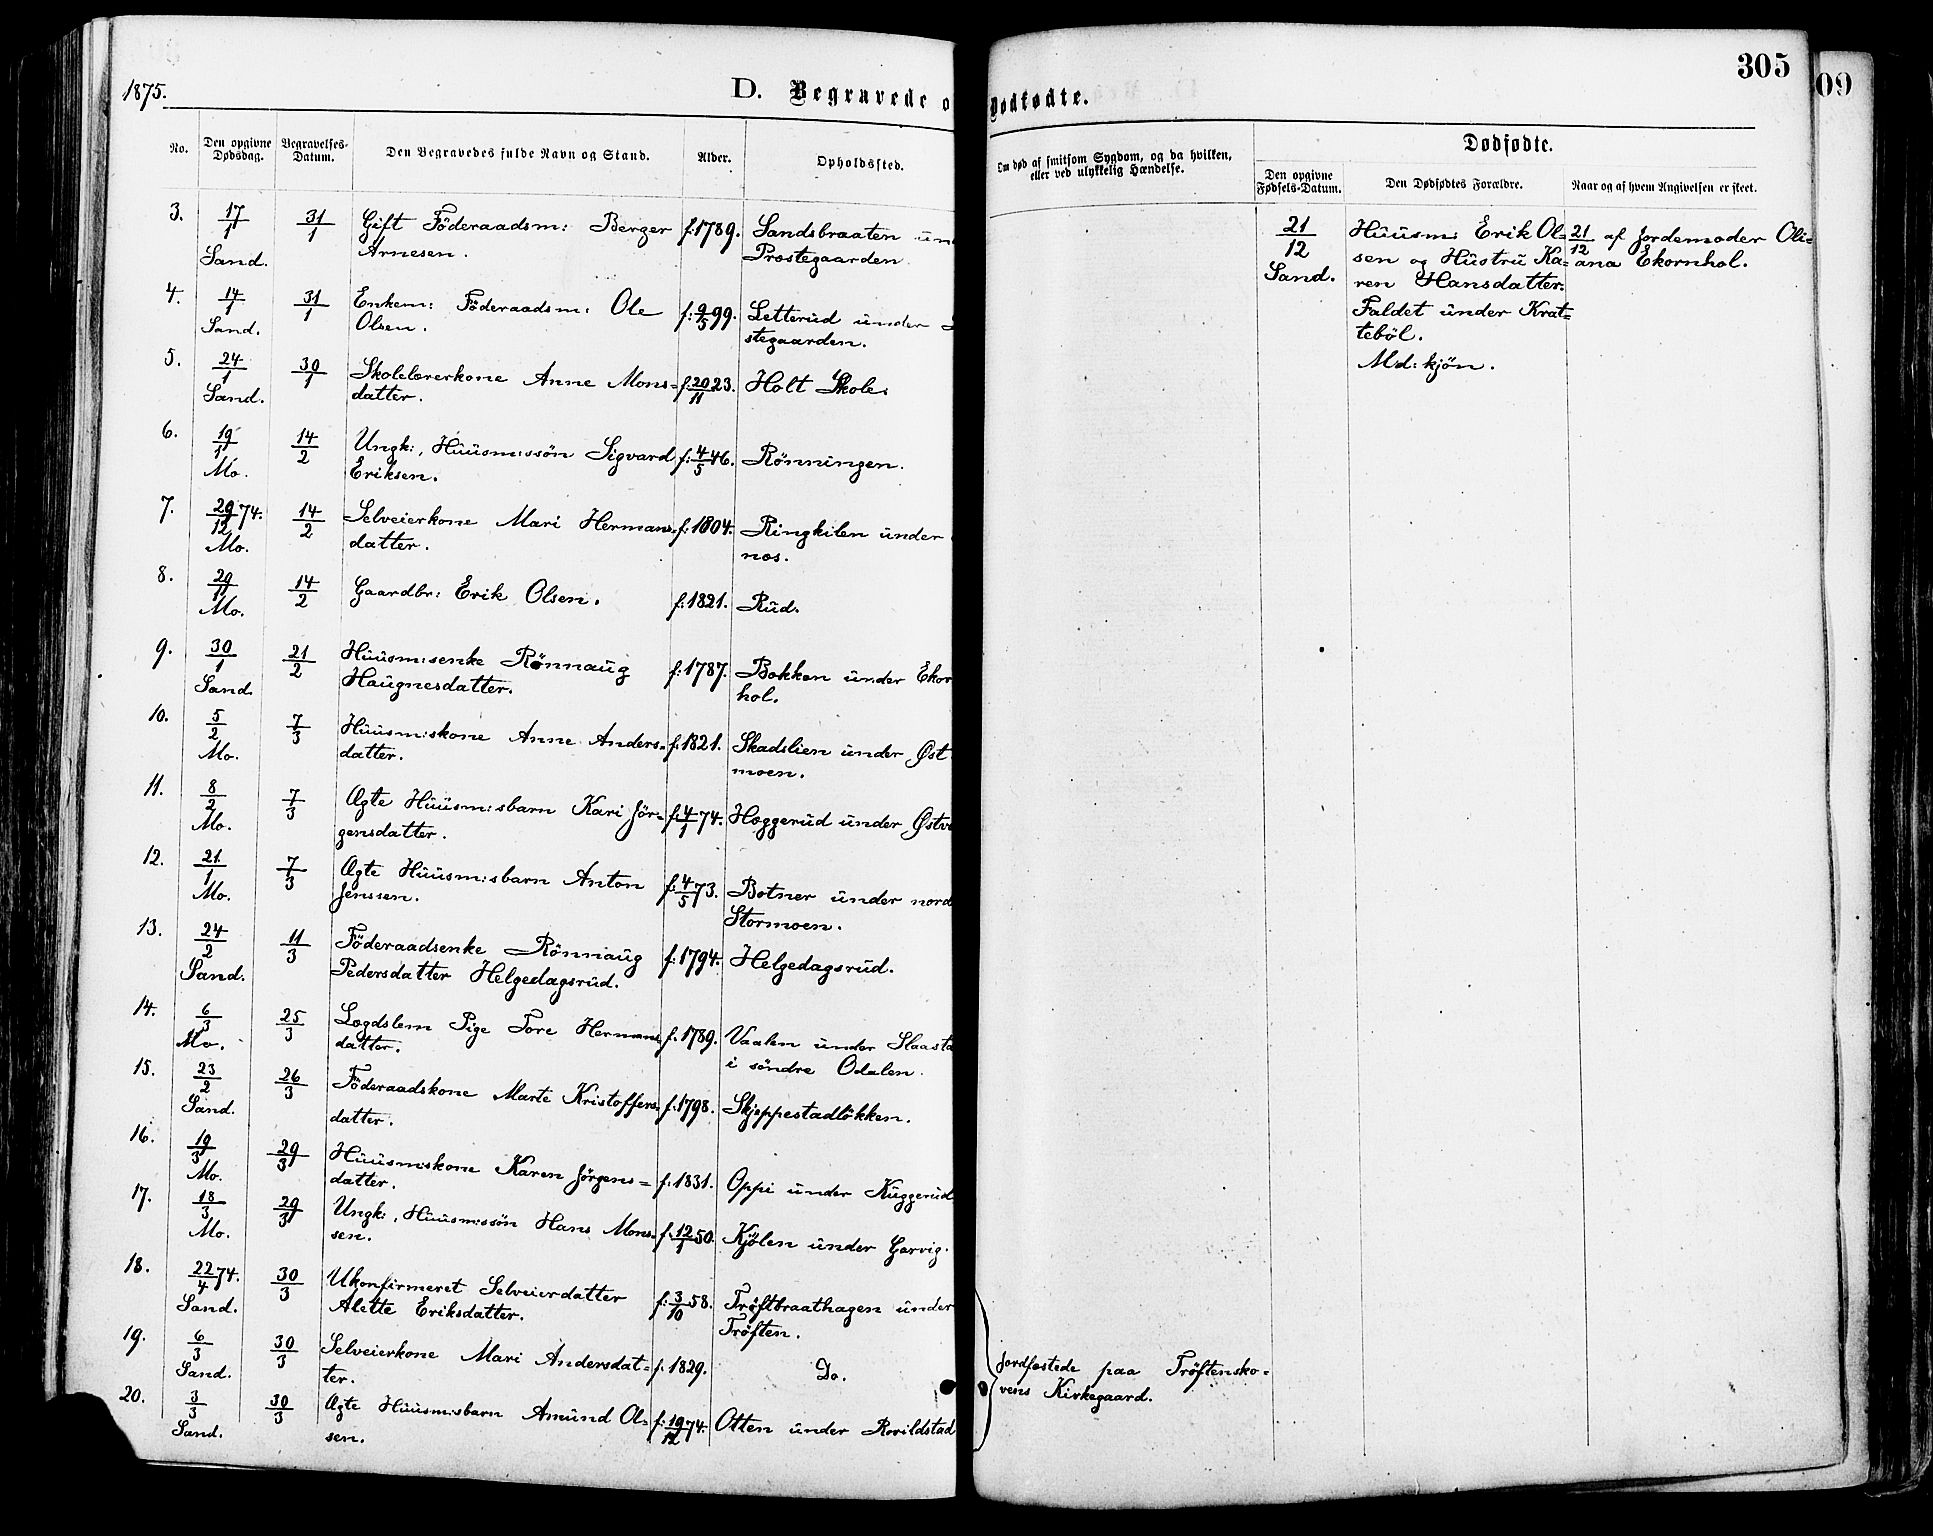 1875.
D. Begravede o
No.
Den opgivne Dødsdag.
Begravelses-Datum.
Den Begravedes fulde Navn og Stand.
Alder.
Opholdssted.
3. 17/1 31/1 Gift Föderaadsm: Berger f: 1789. Sandsbraaten un
Sand. Arnesen. Præstegaarden.
4. 14/1 31/1 Enkem: Föderaadsm: Ole f: 9/5 99. Letterud under
Sand. Olsen. stegaarden.
5. 24/1 30/1 Skolelærerkone Anne Mons= f: 20/11 23. Holt Skole.
Sand. datter.
6. 19/1 14/2 Ungk:, Huusm:ssön Sigvard f: 4/5 46. Rönningen.
Mo. Eriksen.
7. 29/12 74. 14/2 Selveierkone Mari Hermans= f: 1804. Ringkilen under
Mo. datter. næs.
8. 29/11 14/2 Gaardbr: Erik Olsen. f: 1821. Rud.
Mo.
9. 30/1 21/2 Huusm:senke Rönnaug f: 1787. Bakken under Ekor
Sand. Haugnesdatter. hol.
10. 5/2 7/3 Huusm:skone Anne Anders= f: 1821. Skadslien under Øst
Mo. datter. moen.
11. 8/2 7/3 Ægte Huusm:sbarn Kari Jör= f: 4/1 74. Hæggerud under Østv
Mo. gensdatter.
12. 21/1 7/3 Ægte Huusm:sbarn Anton f: 4/5 73. Botner under nord
Mo. Jenssen. Stormoen.
13. 24/2 11/3 Föderaadsenke Rönnaug f: 1794. Helgedagsrud.
Sand. Pedersdatter Helgedagsrud.
14. 6/3 25/3 Lægdslem Pige Tore Hermans f: 1789. Vaalen under Slaasta
Mo. datter. i söndre Odalen.
15. 23/2 26/3 Föderaadskone Marte Kristoffers= f: 1798. Skjeppestadlökken.
Sand. datter.
16. 19/3 29/3 Huusm:skone Karen Jörgens= f: 1831. Oppi under Kuggerud
Mo. datter.
17. 18/3 29/3 Ungk:, Huusm:ssön Hans Mons= f: 12/1 50. Kjölen under Garvig.
Mo. sen.
18. 22/4 74. 30/3 Ukonfirmeret Selveierdatter f: 3/10 58. Tröftbraathagen under
Sand. Alette Eriksdatter. Tröften.
19. 6/3 30/3 Selveierkone Mari Andersdat= f: 1829. Do.
Sand. ter.
20. 3/3 30/3 Ægte Huusm:sbarn Amund Ol= f: 19/12 74. Otten under Rovildstad
Sand. sen.
305
09
Dødfødte.
Om død af smitsom Sygdom, og da hvilken,
eller ved ulykkelig Hændelse.
Dødfødte.
Den opgivne Fødsels-Datum.
Den Dødfødtes Forældre.
Naar og af hvem Angivelsen er skeet.
21/12 Huusm: Erik Ol= 21/12 af Jordemoder Oli=
Sand. sen og Hustru Ka= ana Ekornhol.
ren Hansdatter.
Faldet under Krat=
teböl.
Md: kjön.
Jordfæstede paa Tröftensko=
vens Kirkegaard.